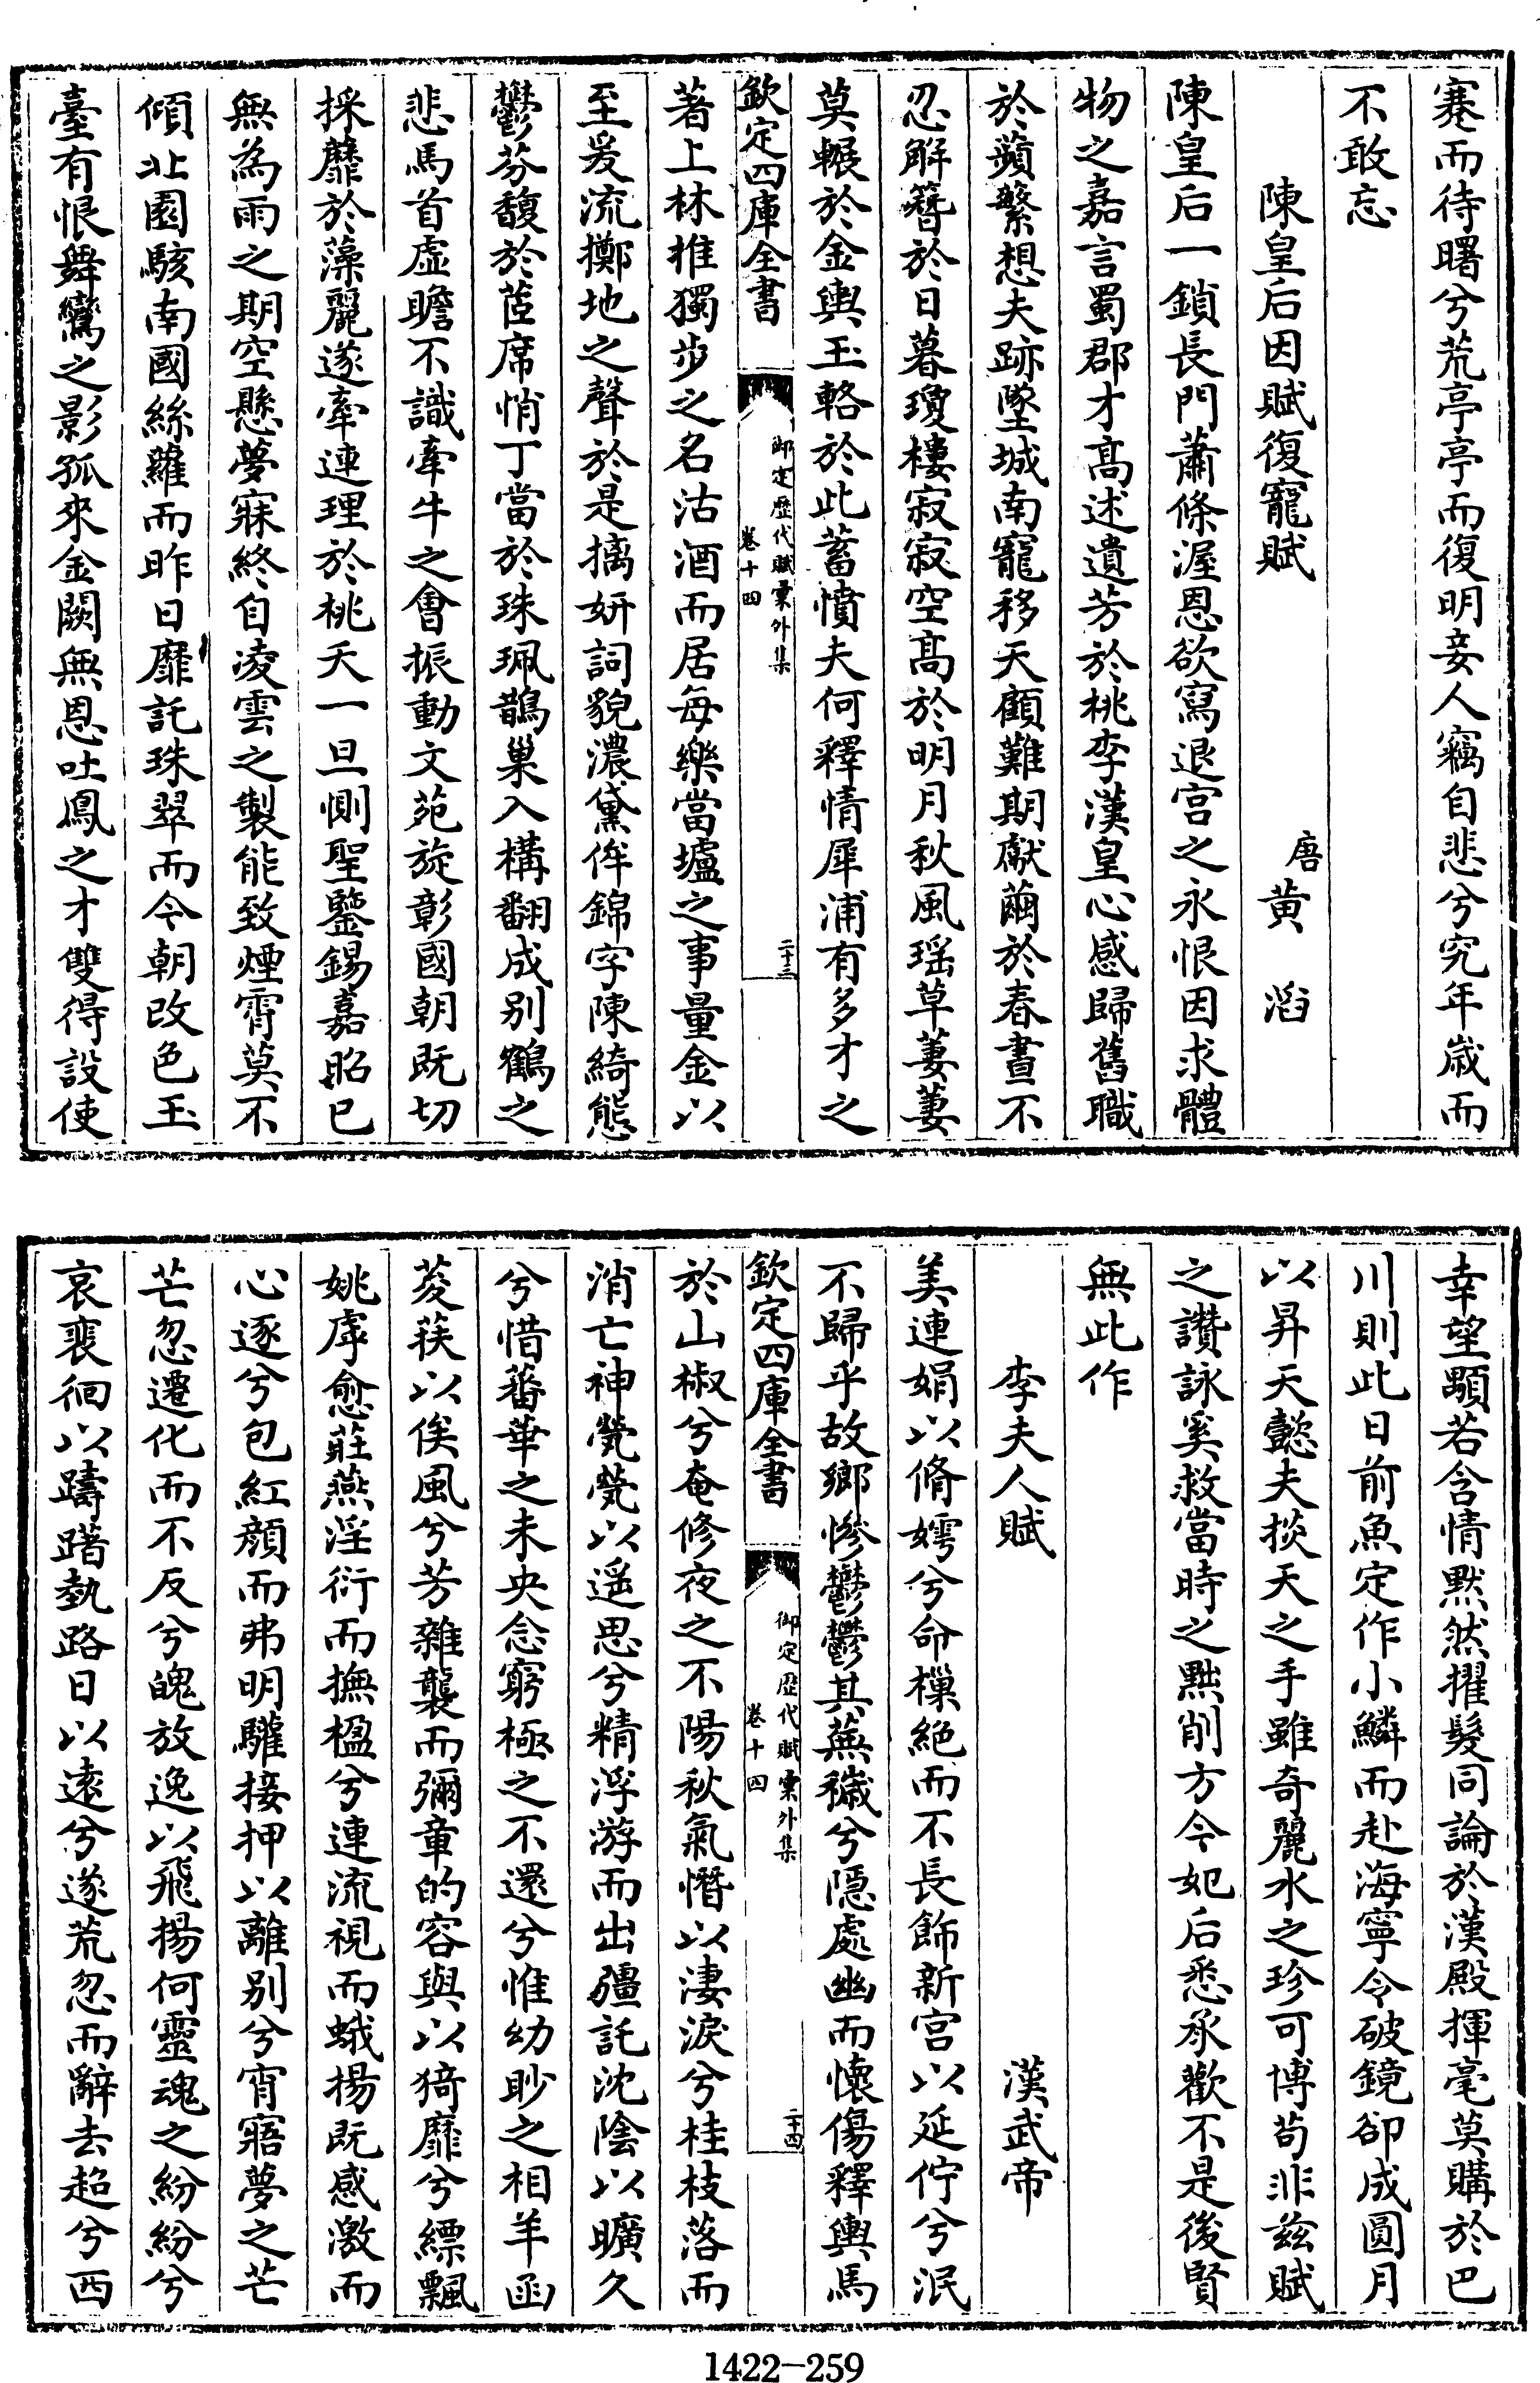 蹇而待曙兮荒亭亭而復明妾人竊自悲兮究年歳而
不敢忘
陳皇后因賦復寵賦
唐黄滔
陳皇后一鎖長門蕭條渥恩欲寫退宫之永恨因求體
物之嘉言蜀郡才髙述遺芳於桃李漢皇心感歸舊職
於蘋蘩想夫跡墜城南寵移天顧難期獻繭於春晝不
忍解簪於日暮瓊樓寂寂空髙於明月秋風瑶草萋萋
莫輾於金輿玉輅於此蓄憤夫何釋情犀浦有多才之
欽定四庫全書
御定歴代賦彚外集
卷十四
二十三
著上林推獨步之名沽酒而居每樂當壚之事量金以
至爰流擲地之聲於是摛妍詞貌濃黛侔錦字陳綺態
鬱芬馥於茝席悄丁當於珠珮鵲巢入構翻成别鶴之
悲馬首虚瞻不識牽牛之會振動文苑旋彰國朝既切
採蘼於藻麗遂牽連理於桃夭一旦惻聖鑒錫嘉昭已
無為雨之期空懸夢寐終自凌雲之製能致煙霄莫不
傾北園駭南國絲蘿而昨日靡託珠翠而今朝改色玉
臺有恨舞鸞之影孤來金闕無恩吐鳳之才雙得設使
幸望顒若含情黙然擢髮同論於漢殿揮毫莫購於巴
川則此日前魚定作小鱗而赴海寧令破鏡卻成圓月
以昇天懿夫掞天之手雖奇麗水之珍可博苟非兹賦
之讚詠奚救當時之黜削方今妃后悉承歡不是後賢
無此作
李夫人賦
漢武帝
美連娟以脩嫮兮命樔絶而不長飾新宫以延佇兮泯
不歸乎故鄉慘鬱鬱其蕪穢兮隱處幽而懷傷釋輿馬
欽定四庫全書
御定歴代賦彚外集
卷十四
二十四
於山椒兮奄修夜之不陽秋氣憯以淒淚兮桂枝落而
消亡神煢煢以遥思兮精浮游而出疆託沈陰以曠久
兮惜蕃華之未央念窮極之不還兮惟幼眇之相羊函
荾荴以俟風兮芳雜襲而彌章的容與以猗靡兮縹飄
姚虖愈莊燕淫衍而撫楹兮連流視而蛾揚既感激而
心逐兮包紅顔而弗明驩接狎以離别兮宵寤夢之芒
芒忽遷化而不反兮魄放逸以飛揚何靈魂之紛紛兮
哀裴徊以躊躇埶路日以逺兮遂荒忽而辭去超兮西
1422-259